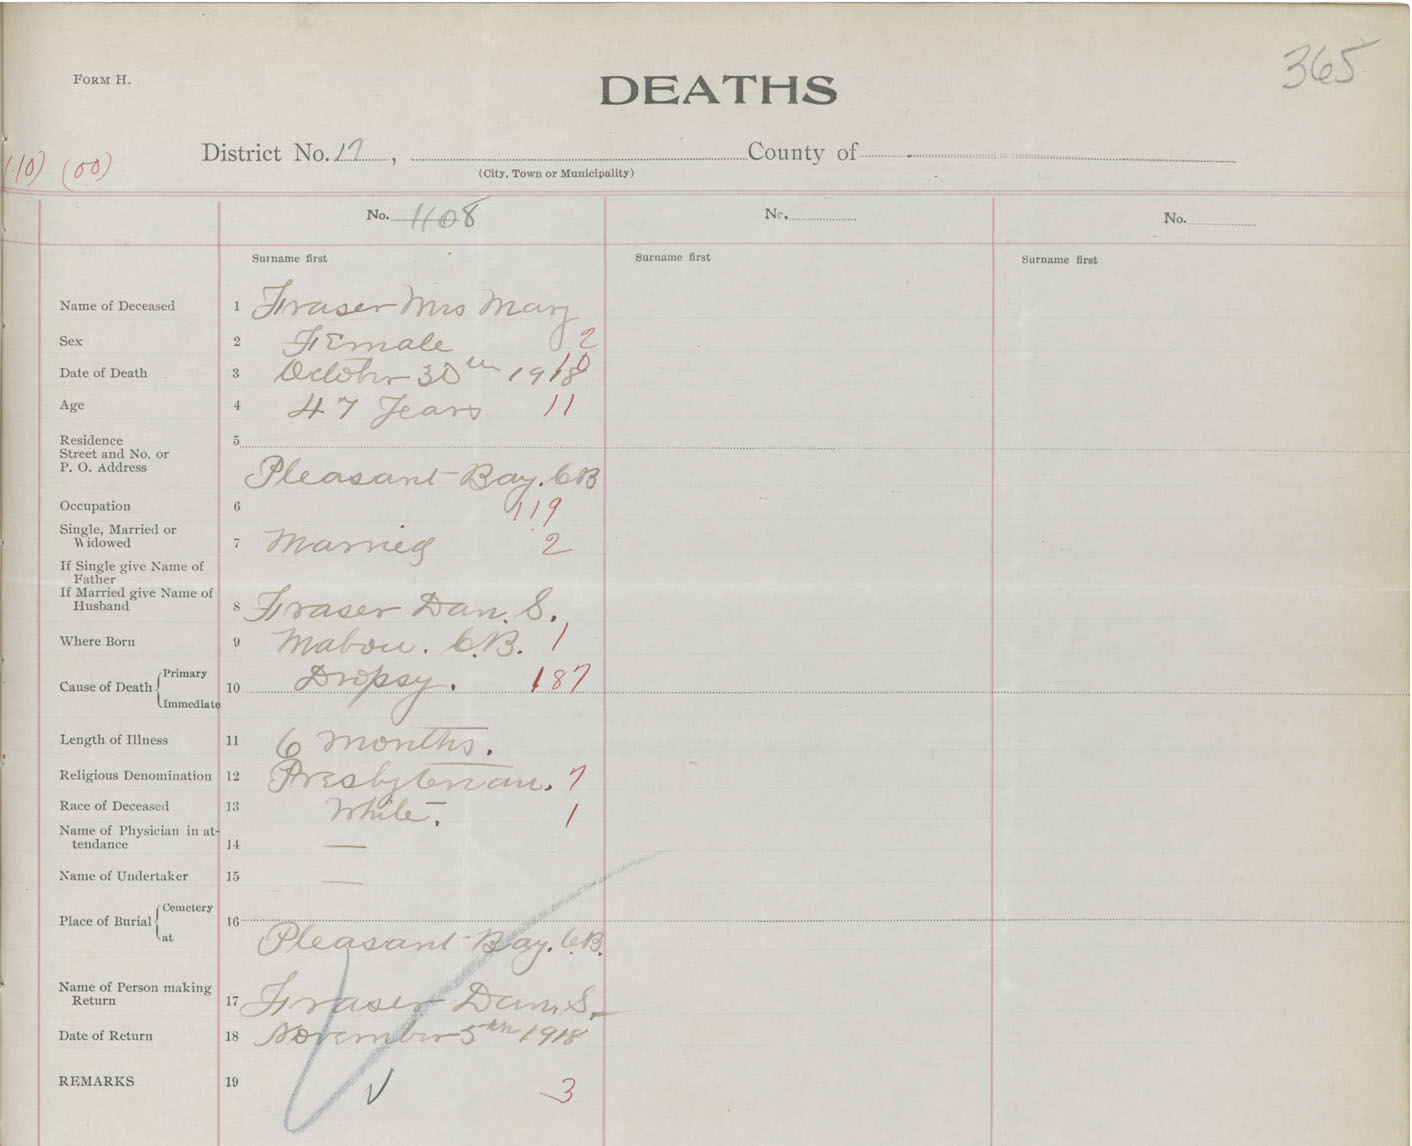 365
FORM H.
DEATHS
District No. 17, County of
(City, Town or Municipality)
(10) (00)
No. 1108 No. No.
Surname first Surname first Surname first
Name of Deceased 1 Fraser Mrs Mary
Sex 2 Female 2
Date of Death 3 October 30th 1918 10
Age 4 47 Years 11
Residence 5
Street and No. or
P. O. Address Pleasant Bay. C B
Occupation 6 119
Single, Married or
Widowed 7 Married 2
If Single give Name of
Father
If Married give Name of
Husband 8 Fraser Dan. S.
Where Born 9 Mabou. C.B. 1
Cause of Death Primary 10 Dropsy. 187
Immediate
Length of Illness 11 6 months.
Religious Denomination 12 Presbyterian. 7
Race of Deceased 13 White. 1
Name of Physician in at-
tendance 14 —
Name of Undertaker 15 —
Place of Burial Cemetery 16
at Pleasant Bay. C.B.
Name of Person making
Return 17 Fraser Dan. S.
Date of Return 18 November 5th 1918
REMARKS 19 3